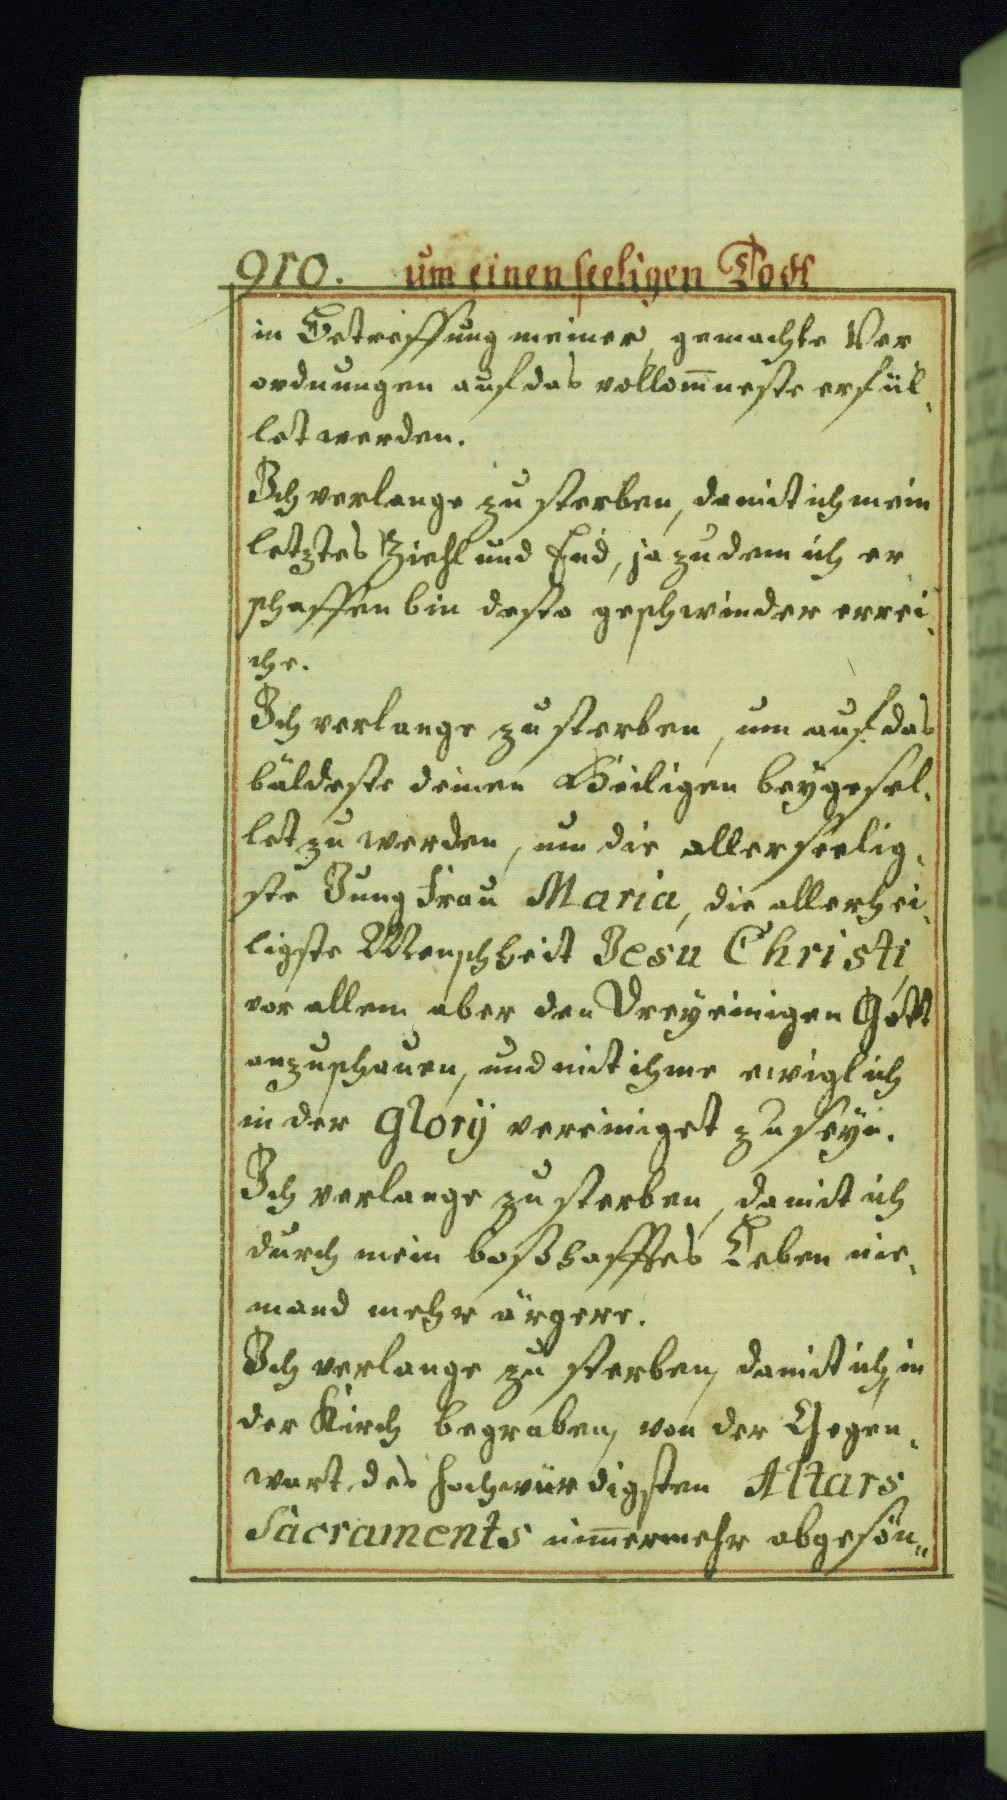 910. um einen seeligen Todt
in Betreffung meiner, gemachte Ver
ordnungen auf das vollom̅neste erfül,
let werden.
Ich verlange zu sterben, damit ich mein
letztes Ziehl und End, ja zu dem ich er
schaffen bin desto geschwinder errei,
che.
Ich verlange zu sterben, um auf das
bäldeste deinen Heiligen beygesel,
let zu werden, um die allerseelig,
ste Jungfrau Maria, die allerhei,
ligste Menschheit Jesu Christi,
vor allem aber den Dreyeinigen Gott
anzuschauen, und mit ihme ewiglich
in der Glory vereiniget zu seyn.
Ich verlange zu sterben, damit ich
durch mein boßhafftes Leben nie,
mand mehr ärgere.
Ich verlange zu sterben, damit ich, in
der Kirch begraben, von der Gegen,
wart des hochwürdigsten Altars
Sacraments nim̅ermehr abgesön,,